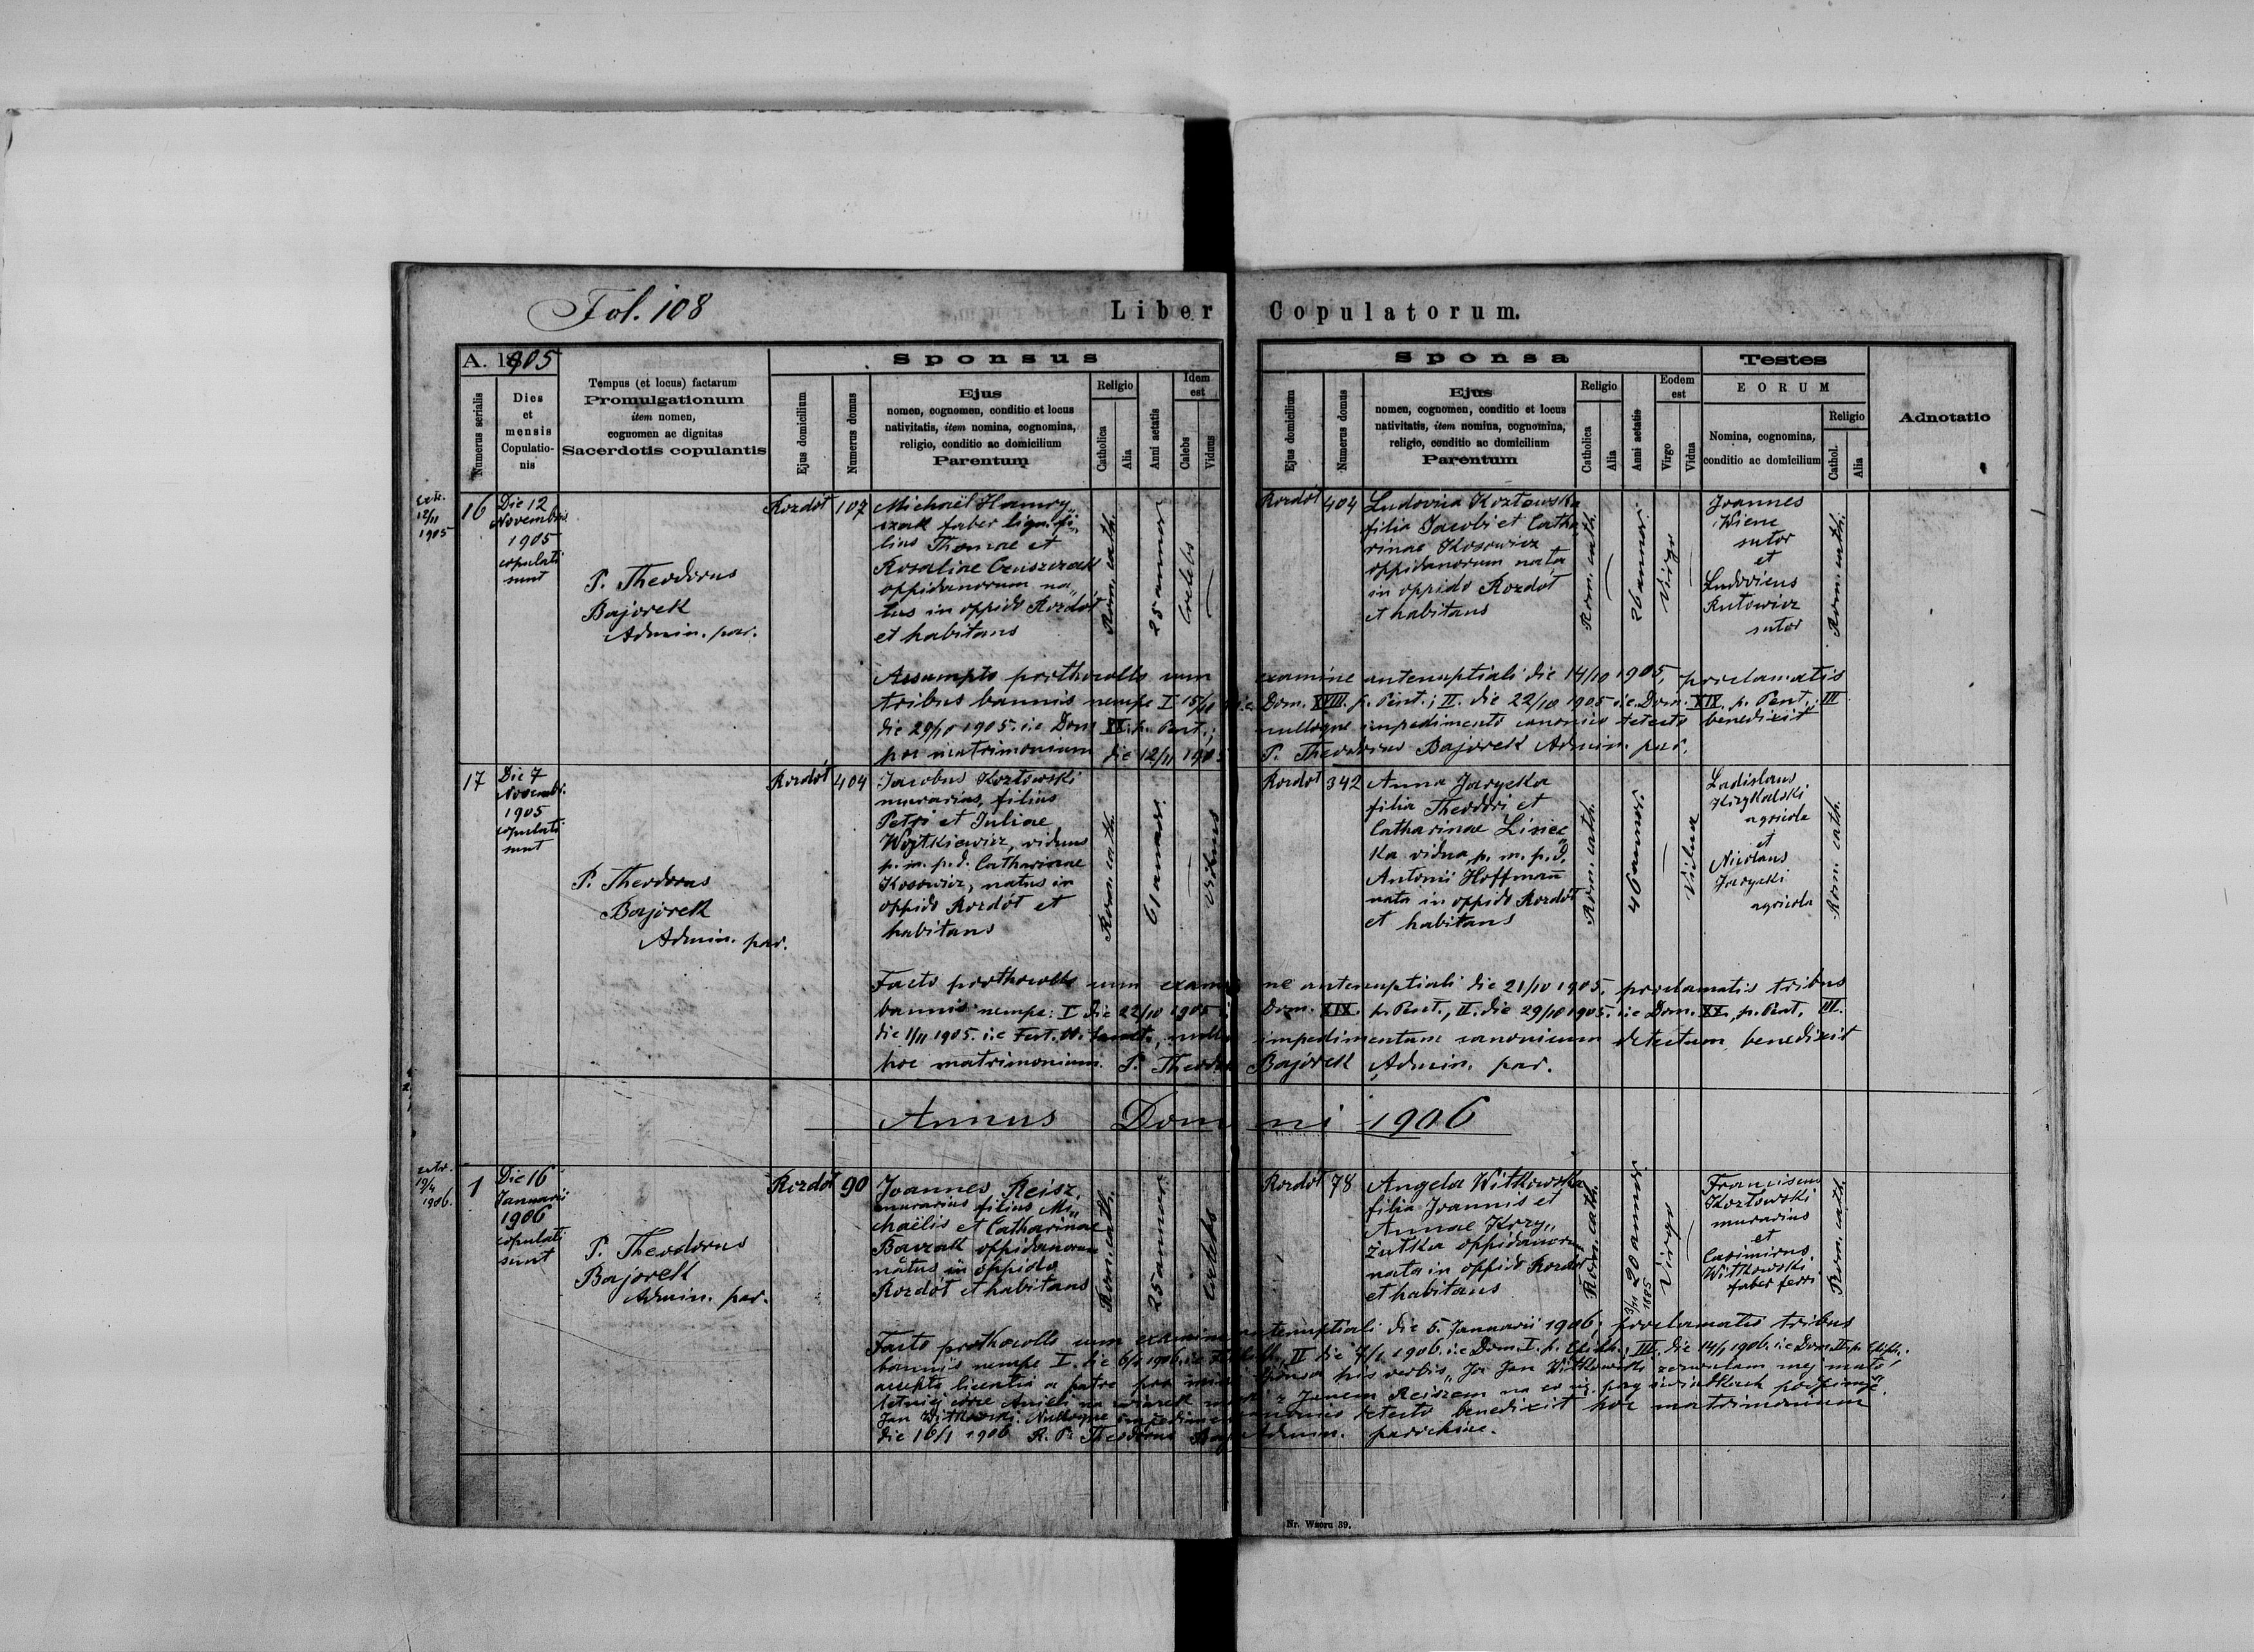 Fol. 108
Liber Copulatorum.
A. 1905
Numerus serialis
Dies
et
mensis
Copulatio-
nis
Tempus (et locus) factarum
Promulgationum
item nomen,
cognomen ac dignitas
Sacerdotis copulantis
Sponsus
Ejus domicilium
Numerus domus
Ejus
nomen, cognomen, conditio et locus
nativitatis, item nomina, cognomina,
religio, conditio ac domicilium
Parentum
Religio
Catholica
Alia
Anni aetatis
Idem
est
Caelebs
Viduus
Sponsa
Ejus domicilium
Numerus domus
Ejus
nomen, cognomen, conditio et locus
nativitatis, item nomina, cognomina,
religio, conditio ac domicilium
Parentum
Religio
Catholica
Alia
Anni aetatis
Eodem
est
Virgo
Vidua
Testes
EORUM
Nomina, cognomina,
conditio ac domicilium
Religio
Cathol.
Alia
Adnotatio
12/11
1905
16
Die 12
Novembris
1905
copulati
sunt
P. Theodorus
Bajorek
Admin. par.
Rozdół
107
Michaël Hamry„
szak faber lign. fi„
lius Thomae et
Rosaliae Cruszczak
oppidanorum na„
tus in oppido Rozdół
et habitans
Rom. cath.
25 annor.
Coelebs
Rozdół
404
Ludovica Kozłowska
filia Jacobi et Catha
rinae Kosowicz
oppidanorum nata
in oppido Rozdół
et habitans
Rom. cath.
26 annor.
Virgo
Joannes
Wiene
sutor
et
Ludovicus
Rutowicz
sutor
Rom. cath.
Assumpto prothocollo cum examine antenuptiali die 14/10 1905, proclamatis
tribus bannis nempe I 15/10 i.e. Dom. XVIII. p. Pent.; II. die 22/10 1905 i.e Dom. XIX. p. Pent.; III
die 29/10 1905. i.e Dom XX. p. Pent.; nulloque impedimento canonico detecto benedixit
hoc matrimonium die 12/11 1905 P. Theodorus Bajorek Admin. par.
17
Die 7
Novembr.
1905
copulati
sunt
P. Theodorus
Bajorek
Admin. par.
Rozdół
404
Jacobus Kozłowski
murarius, filius
Petri et Juliae
Wojtkiewicz, viduus
p. m. p. d. Catharinae
Kosowicz, natus in
oppido Rozdół et
habitans
Rom. cath.
61 annor.
Viduus
Rozdół
342
Anna Jarycka
filia Theodori et
Catharinae Lisiec„
ka vidua p. m. p. d.
Antonii Hoffmann
nata in oppido Rozdół
et habitans
Rom. cath.
46 annor.
Vidua
Ladislaus
Kizykalski
agricola
et
Nicolaus
Jarycki
agricola
Rom. cath.
Facto prothocollo cum examine antenuptiali die 21/10 1905, proclamatis tribus
bannis nempe: I die 22/10 1905 i. Dom. XIX. p. Pent., II. die 29/10 1905. i.e Dom. XX. p. Pent. III.
die 1/11 1905. i.e Fest. OO. Sanct., nullo impedimentum canonicum detectum benedixit
hoc matrimonium. P. Theodor Bajorek Admin. par.
Annus Domini 1906
19/4
1906.
1
Die 16
Januarii
1906
copulati
sunt
P. Theodorus
Bajorek
Admin. par.
Rozdół
90
Joannes Reisz,
murarius filius Mi„
chaëlis et Catharinae
Bawzak oppidanorum
natus in oppido
Rozdół et habitans
Rom. cath.
25 annor.
Coelebs
Rozdół
78
Angela Witkowska
filia Joannis et
Annae Krzy„
żutska oppidanorum
nata in oppido Rozdół
et habitans
Rom. cath.
3/11 1885
20 annor.
Virgo
Franciscus
Kozłowski
murarius
et
Casimirus
Witkowski
faber ferri
Rom. cath.
Facto prothocollo cum examine antenuptiali die 5. Januarii 1906; proclamatis tribus
bannis nempe I. die 6/1 1906. i.e II die 7/1 1906. i.e Dom. I. p. Epiph., III. die 14/1 1906. i.e Dom II. p. Epiph.;
accepta licentia a patre pro sponsa his verbis „Ja Jan Witkowski zezwalam mej mało„
letniej córce Anieli na z Janem Reiszem na co się przy świadkach podpisuję.
Jan Witkowski. Nulloque impedimento canonico detecto benedixit hoc matrimonium
die 16/1 1906 R. P. Theodorus Admin. parochiae.
Nr. Wzoru 39.